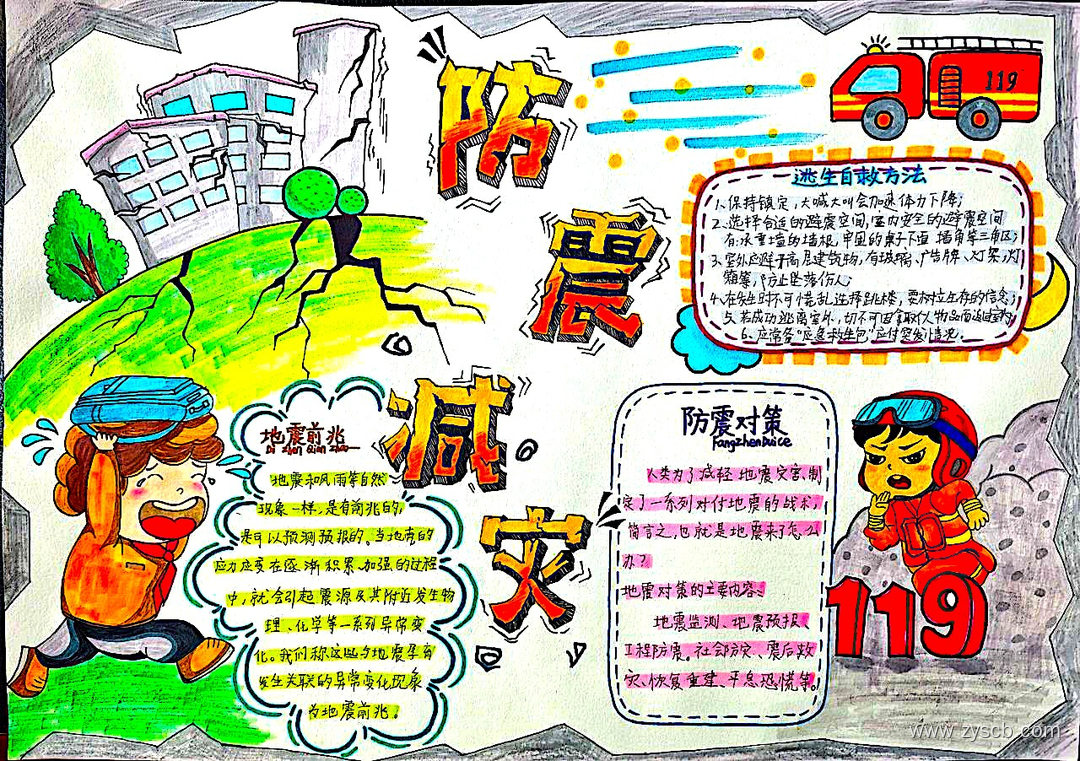 防震减灾
119
逃生自救方法
1、保持镇定,大喊大叫会加速体力下降;
2、选择合适的避震空间,室内安全的避震空间
有:承重墙的墙根,牢固的桌子下面 墙角等三角区;
3、室外应避开高层建筑物,有玻璃、广告牌、灯
箱等,防止坠落伤人;
4、在发生时不可慌乱选择跳楼,要树立生存的信念;
5、若成功逃离室外,切不可因拿取
6、应常备"应急救生包"应付突发情况。
地震前兆
Di zhen Qian zhao
地震和风雨等自然
现象一样,是有前兆的,
是可以预测预报的。当地壳的
应力应变在逐渐积累、加强的过程
中,就会引起震源及其附近发生物
理、化学等一系列异常变
化。我们称这些与地震孕育
发生关联的异常变化现象
为地震前兆。
防震对策
Fangzhenduice
人类为了减轻地震灾害,制
定了一系列对付地震的战术,
简言之,也就是地震来了怎么
办?
地震对策的主要内容:
地震监测、地震预报、
工程防震。社会防灾、震后救
灾、恢复重建、平息恐慌等。
119
www.zyscb.com